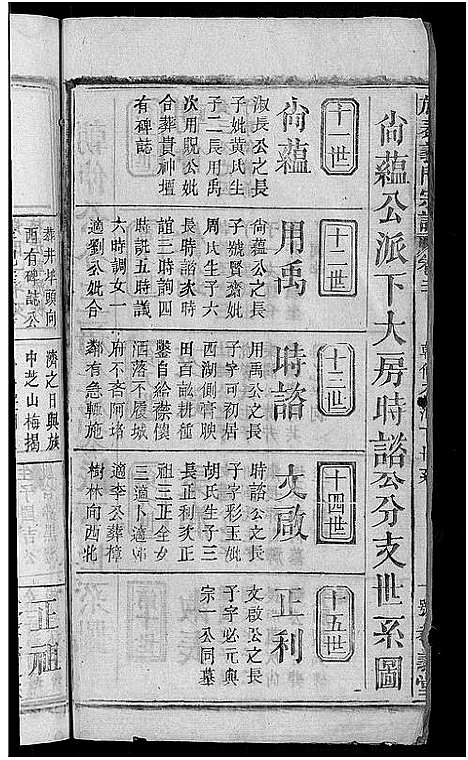 尙蘊公派下大房時諮公分支世系圖
十一世
尙蘊
淑長公之長
子妣黃氏生
子二長用禹
次用貺公妣
合葬貴神壇
有碑誌
十二世
用禹
尙蘊公之長
子號賢齋妣
周氏生子六
長時諮次時
誼三時詢四
時訊五時議
六時調女一
適劉公妣合
十三世
時諮
用禹公之長
子字可初居
西湖側膏腴
田百畝耕種
鑿自給襟懷
洒落不履城
府不吝阿堵
鄰有急輒施
十四世
文啟
時諮公之長
子字彩玉妣
胡氏生子三
長正利次正
祖三正全女
三適卜適邱
適李公葬樟
樹林向西北
十五世
正利
文啟公之長
子字必元與
宗一公同墓
葬井坪頭向
酉有碑誌公
濟之日與族
中芝山梅揭
正祖